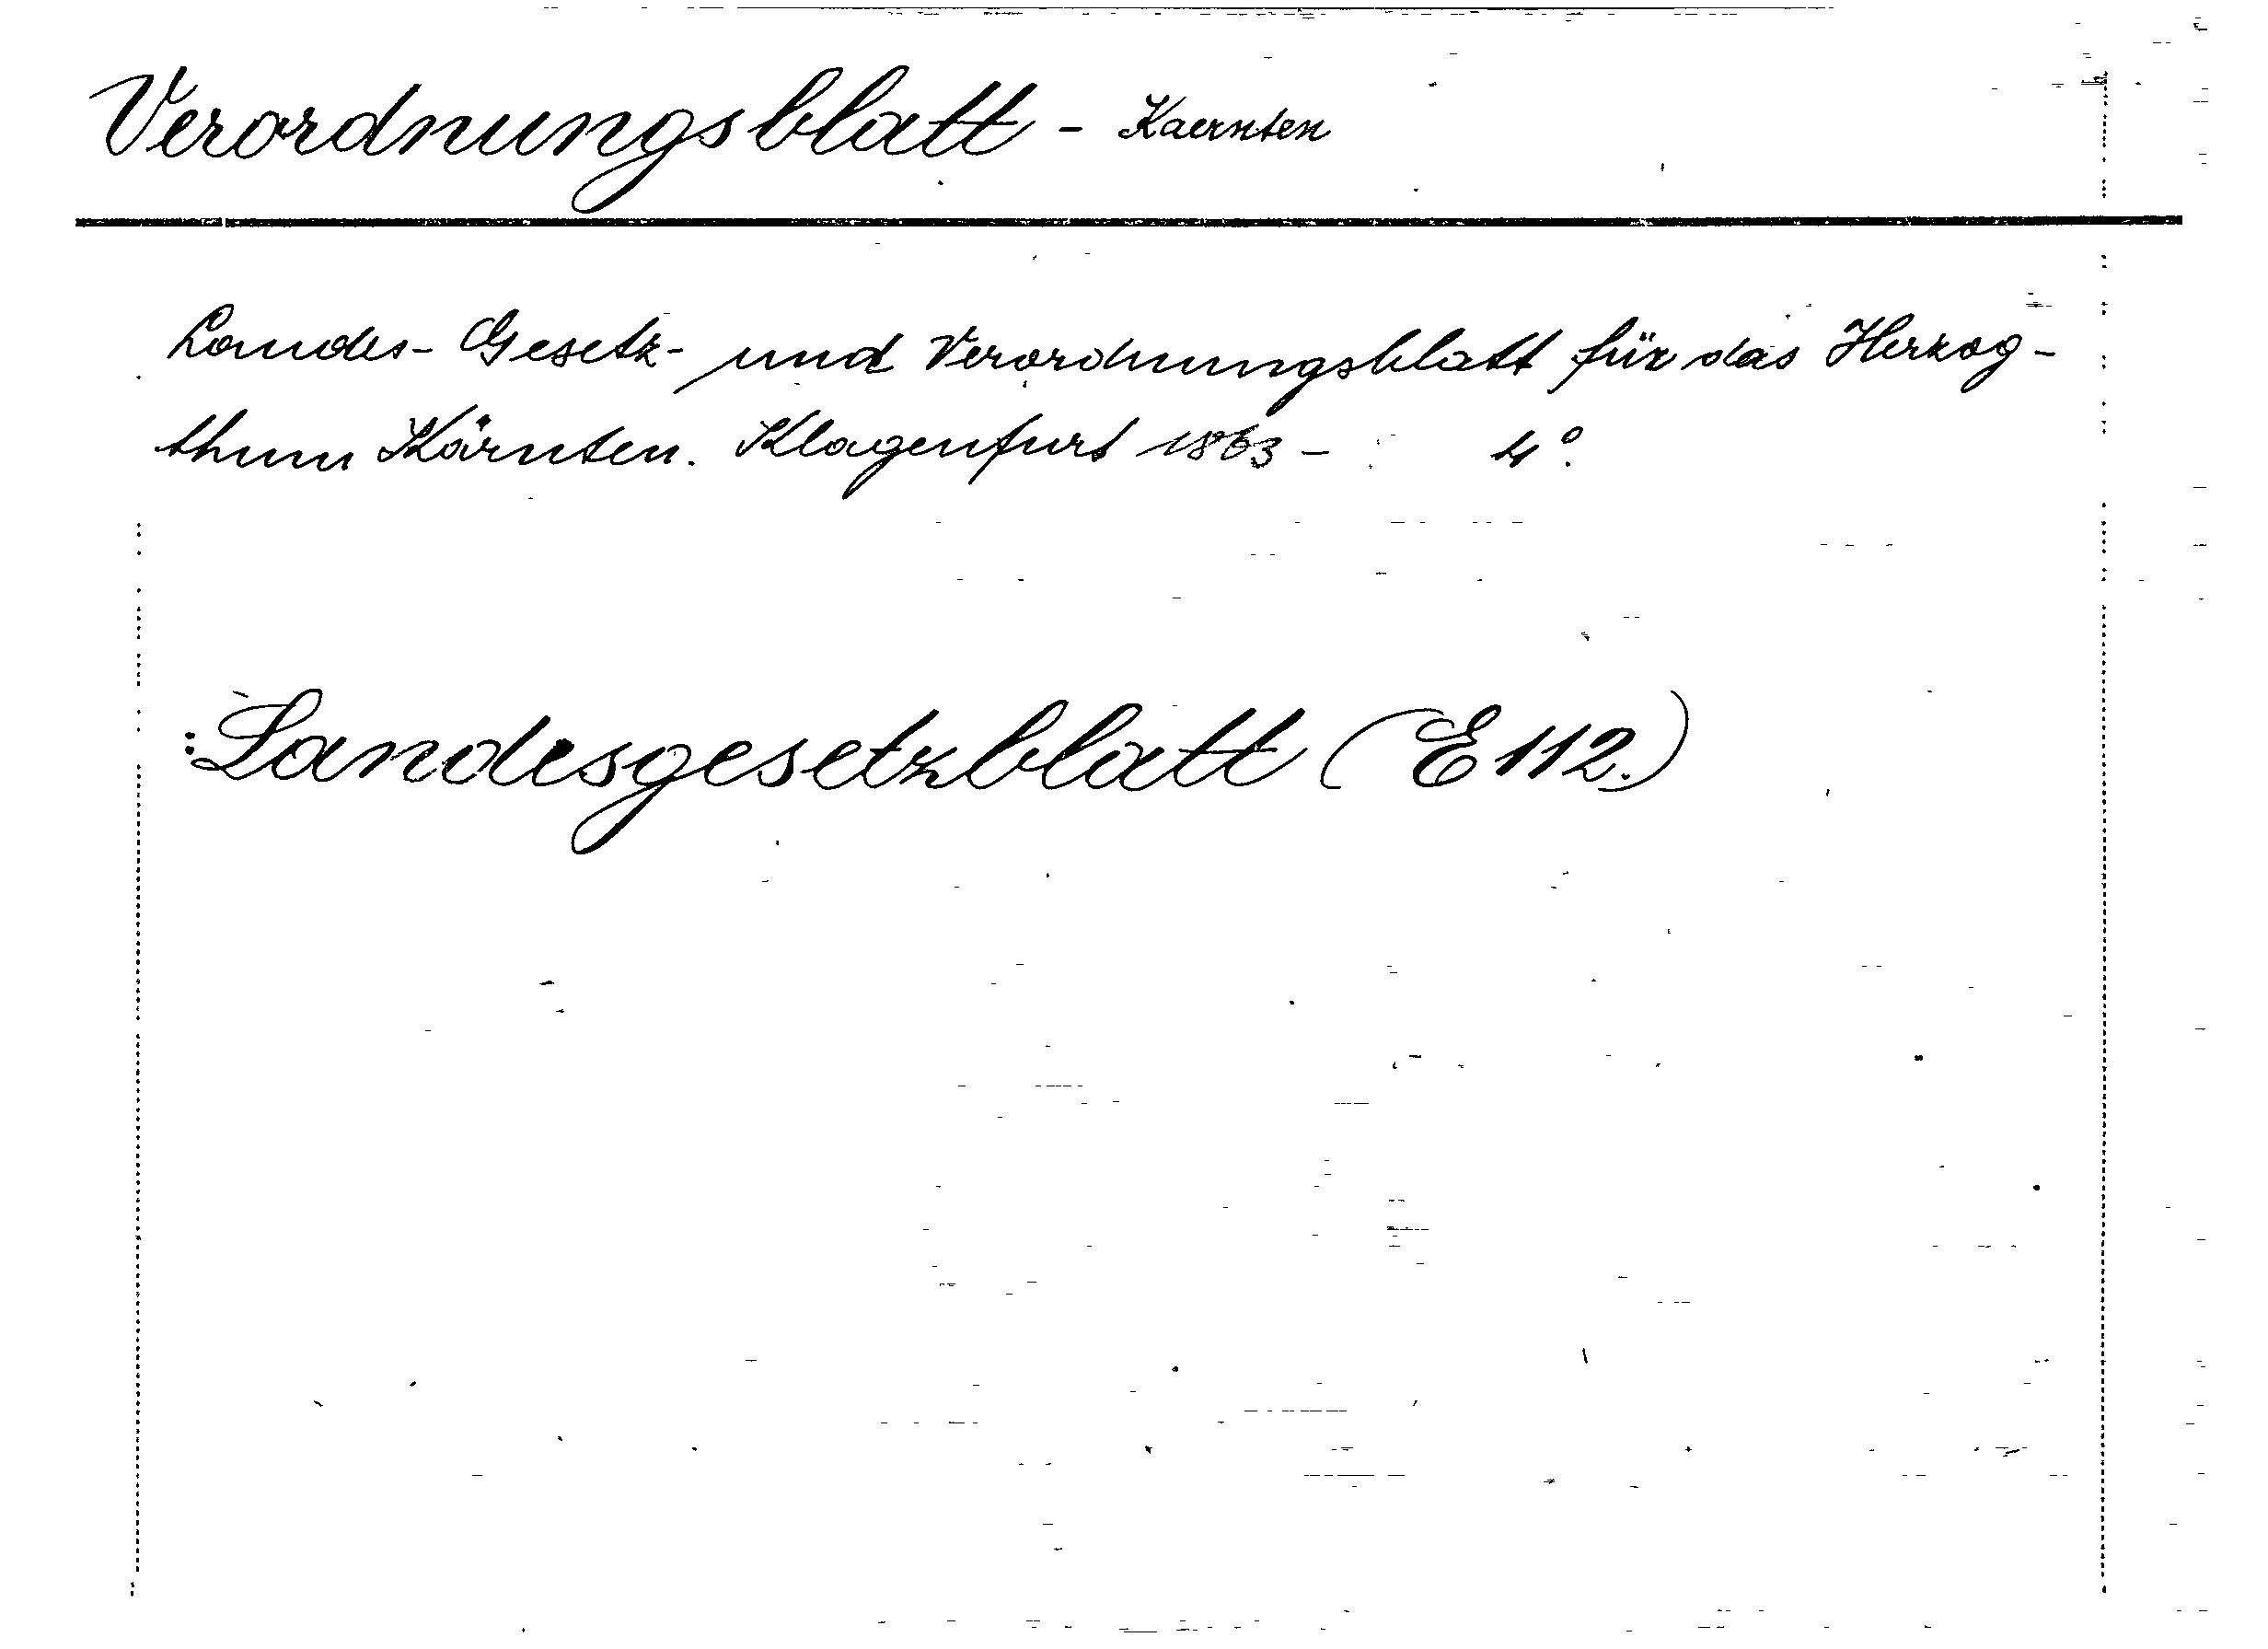 Verordnungsblatt - Kaernten
Landes- Gesetz- und Verordnungsblatt für das Herzog-
thum Kärnten. Klagenfurt 1863 - 4°.
: Landesgesetzblatt (E 112.)